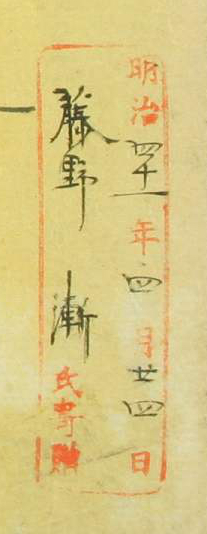 明治四十一年四月廿四日
藤野漸氏寄贈